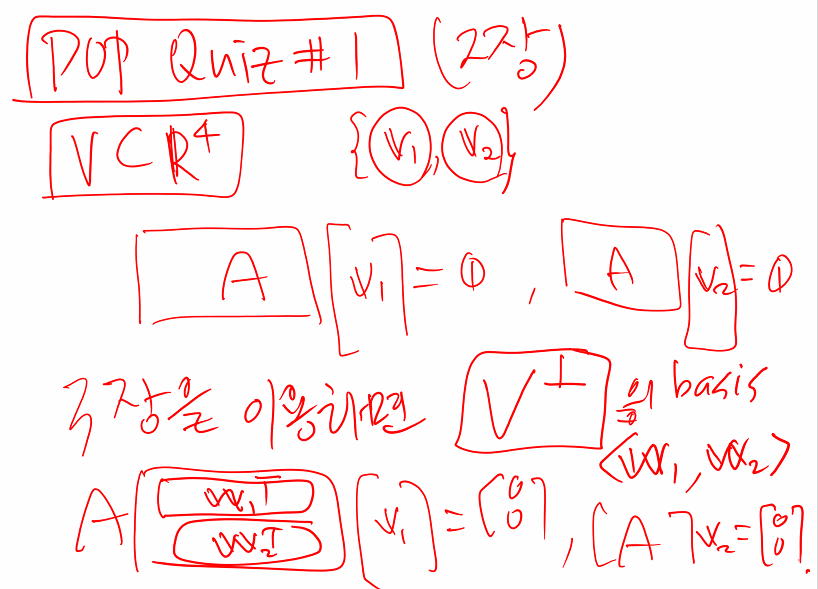 POP Quiz # 1 (2장)
V ⊂ R⁴ {v₁, v₂}
A [v₁] = 0 , A [v₂] = 0
3장을 이용하면 V⊥의 basis
<w₁, w₂>
A [w₁ᵀ w₂ᵀ] [v₁] = [0 0], [A] v₂ = [0 0].